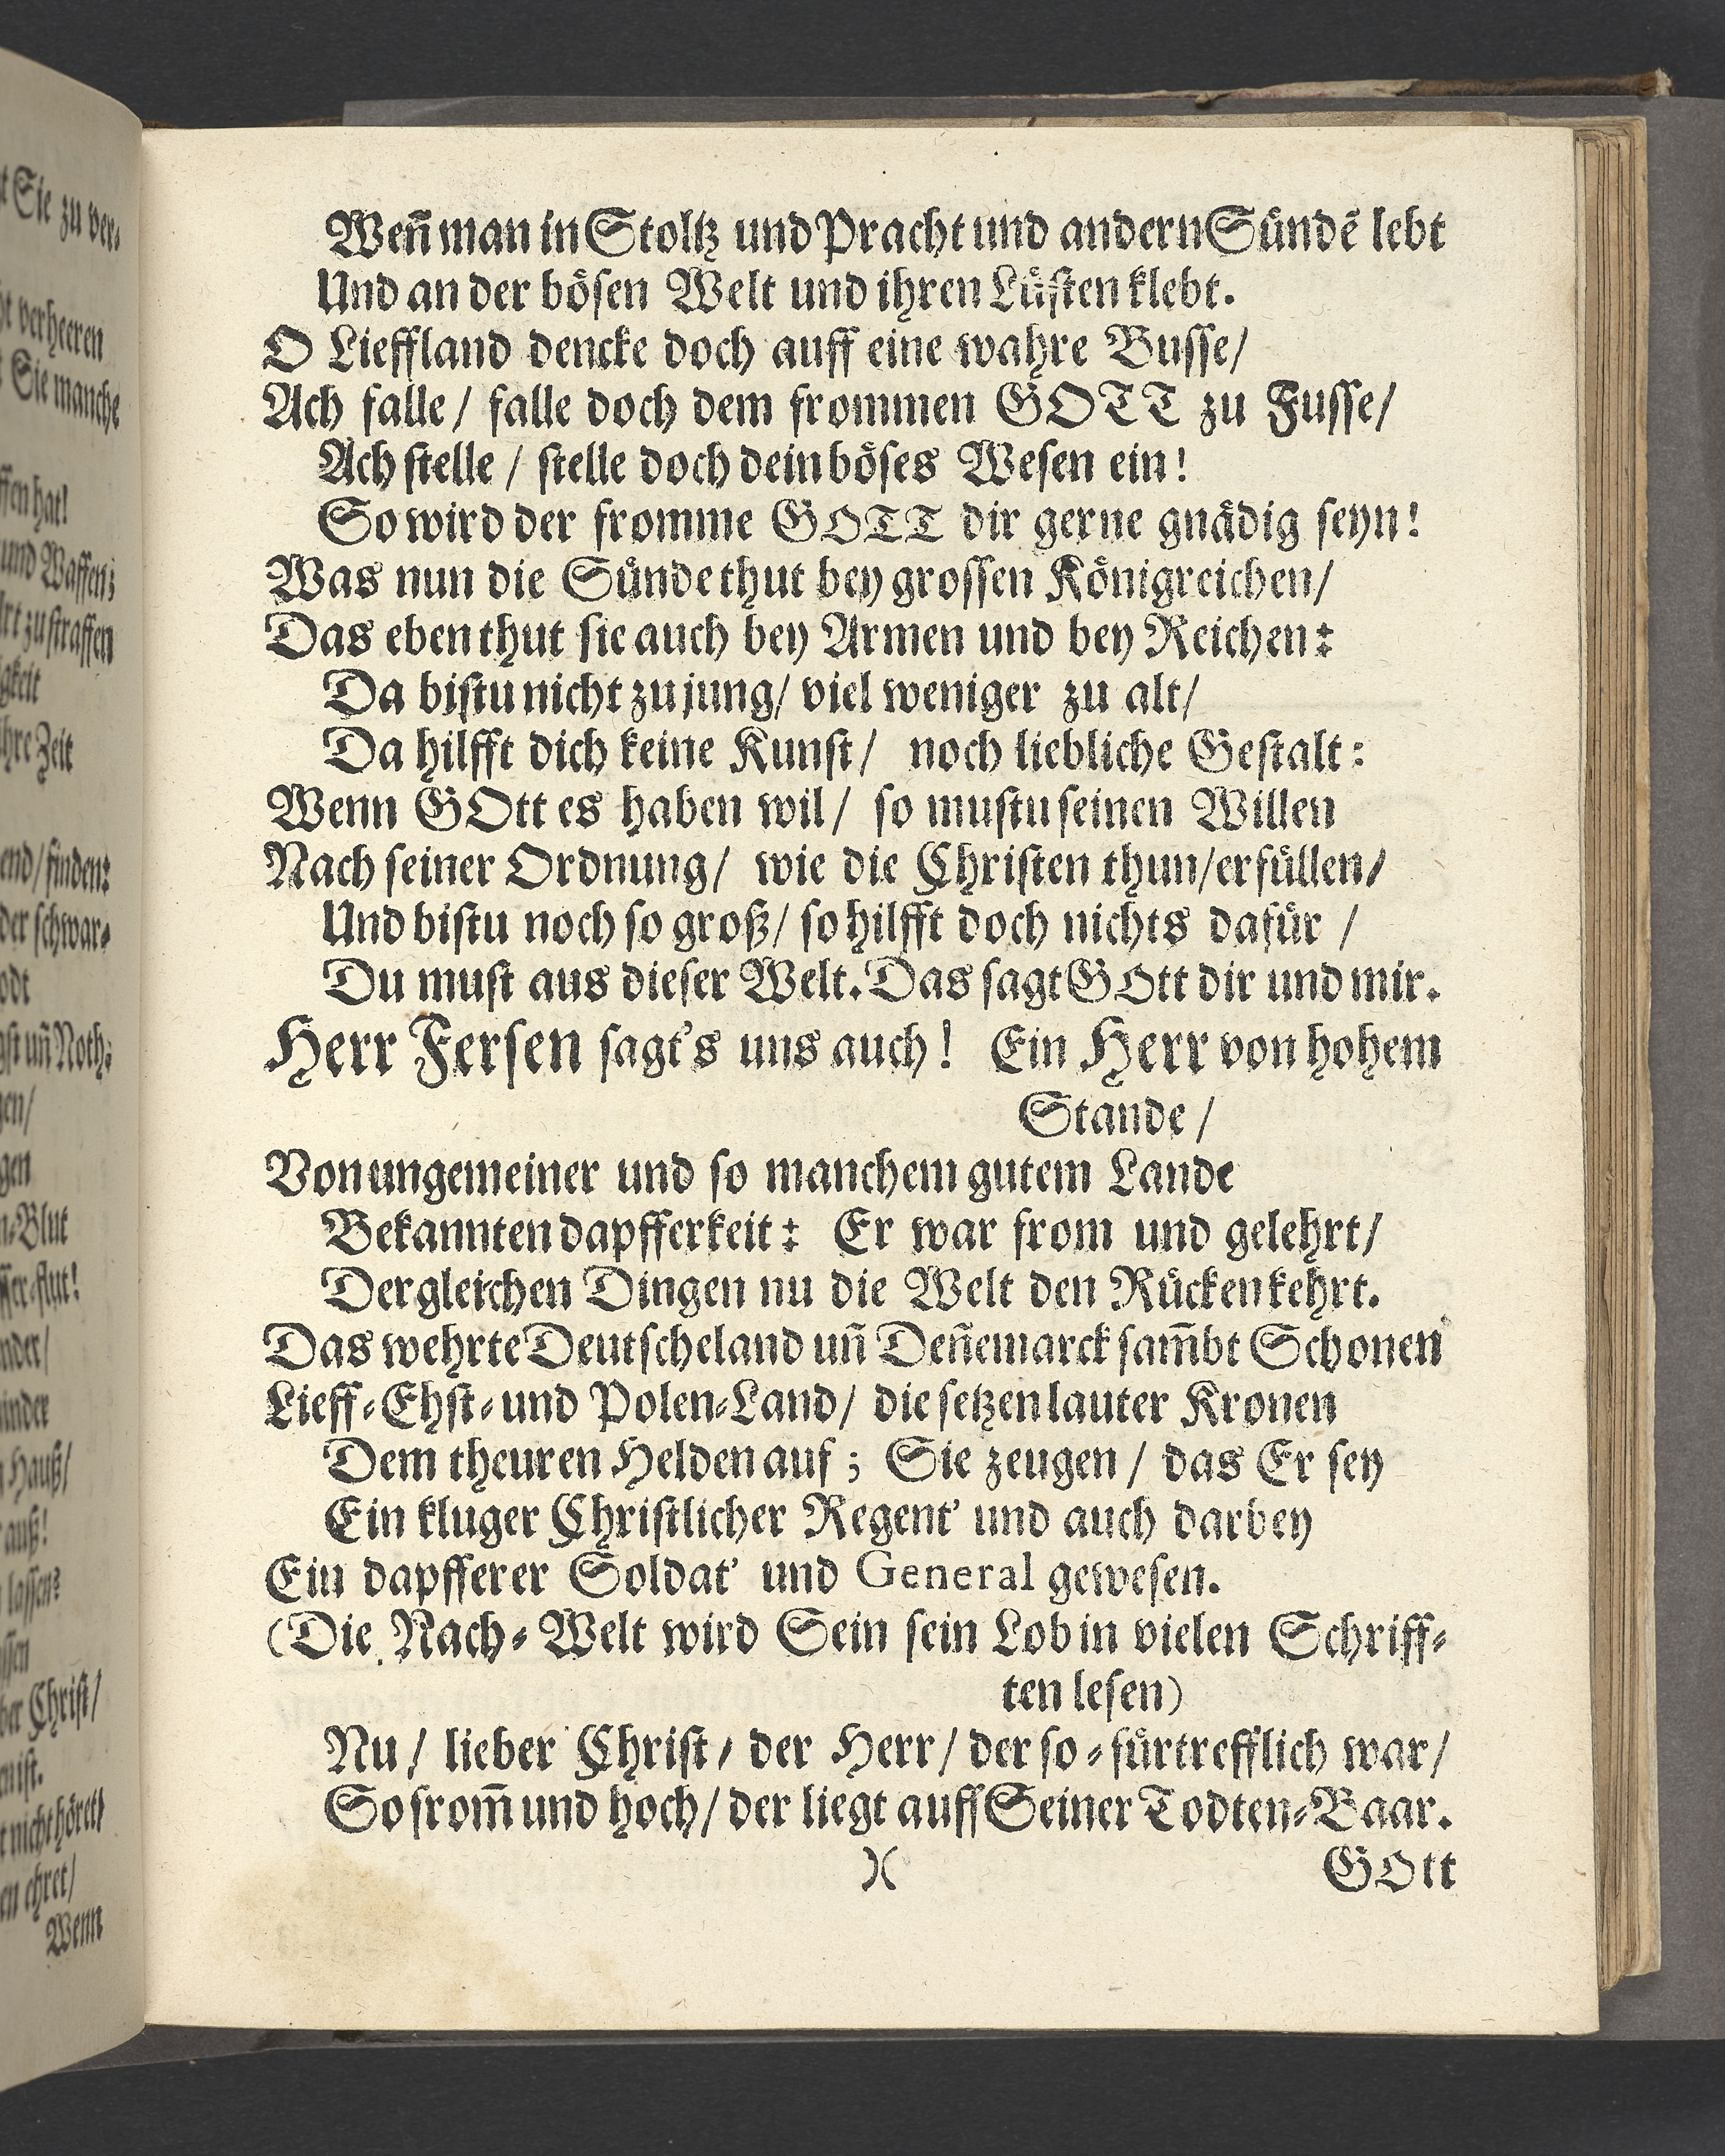 Weñ man in Stoltz und Pracht und andern Sündẽ lebt
Und an der bösen Welt und ihren Lüsten klebt.
O Lieffland dencke doch auff eine wahre Busse/
Ach falle/ falle doch dem frommen GOTT zu Fusse/
Ach stelle / stelle doch dein böses Wesen ein!
So wird der fromme GOTT dir gerne gnädig seyn!
Was nun die Sünde thut bey grossen Königreichen/
Das eben thut sie auch bey Armen und bey Reichen:
Da bistu nicht zu jung/ viel weniger zu alt/
Da hilfft dich keine Kunst/ noch liebliche Gestalt:
Wenn GOtt es haben wil/ so mustu seinen Willen
Nach seiner Ordnung/ wie die Christen thun/ erfüllen/
Und bistu noch so groß/ so hilfft doch nichts dafür /
Du must aus dieser Welt. Das sagt GOtt dir und mir.
Herr Fersen sagt's uns auch! Ein Herr von hohem
Stande /
Von ungemeiner und so manchem gutem Lande
Bekannten dapfferkeit: Er war from und gelehrt/
Dergleichen Dingen nu die Welt den Rücken kehrt.
Das wehrte Deutscheland uñ Deñemarck sam̃bt Schonen
Lieff-Ehst-und Polen-Land/ die setzen lauter Kronen
Dem theuren Helden auf; Sie zeugen / das Er sey
Ein kluger Christlicher Regent' und auch darbey
Ein dapfferer Soldat' und General gewesen.
(Die Nach-Welt wird Sein sein Lob in vielen Schriff-
ten lesen)
Nu / lieber Christ / der Herr / der so-fürtrefflich war/
So from̃ und hoch/ der liegt auff Seiner Todten-Baar.
)( GOtt
Sie zu ver-
verheeren
Sie manche
hat!
und Waffen;
zu straffen
Zeit
finden:
der schwar-
uñ Noth:
Blut
Hauß/
auß!
lassen?
Christ/
ist.
nicht höret/
ehret/
Wenn